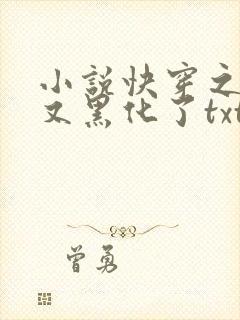 小说快穿之
又黑化了txt
曾勇